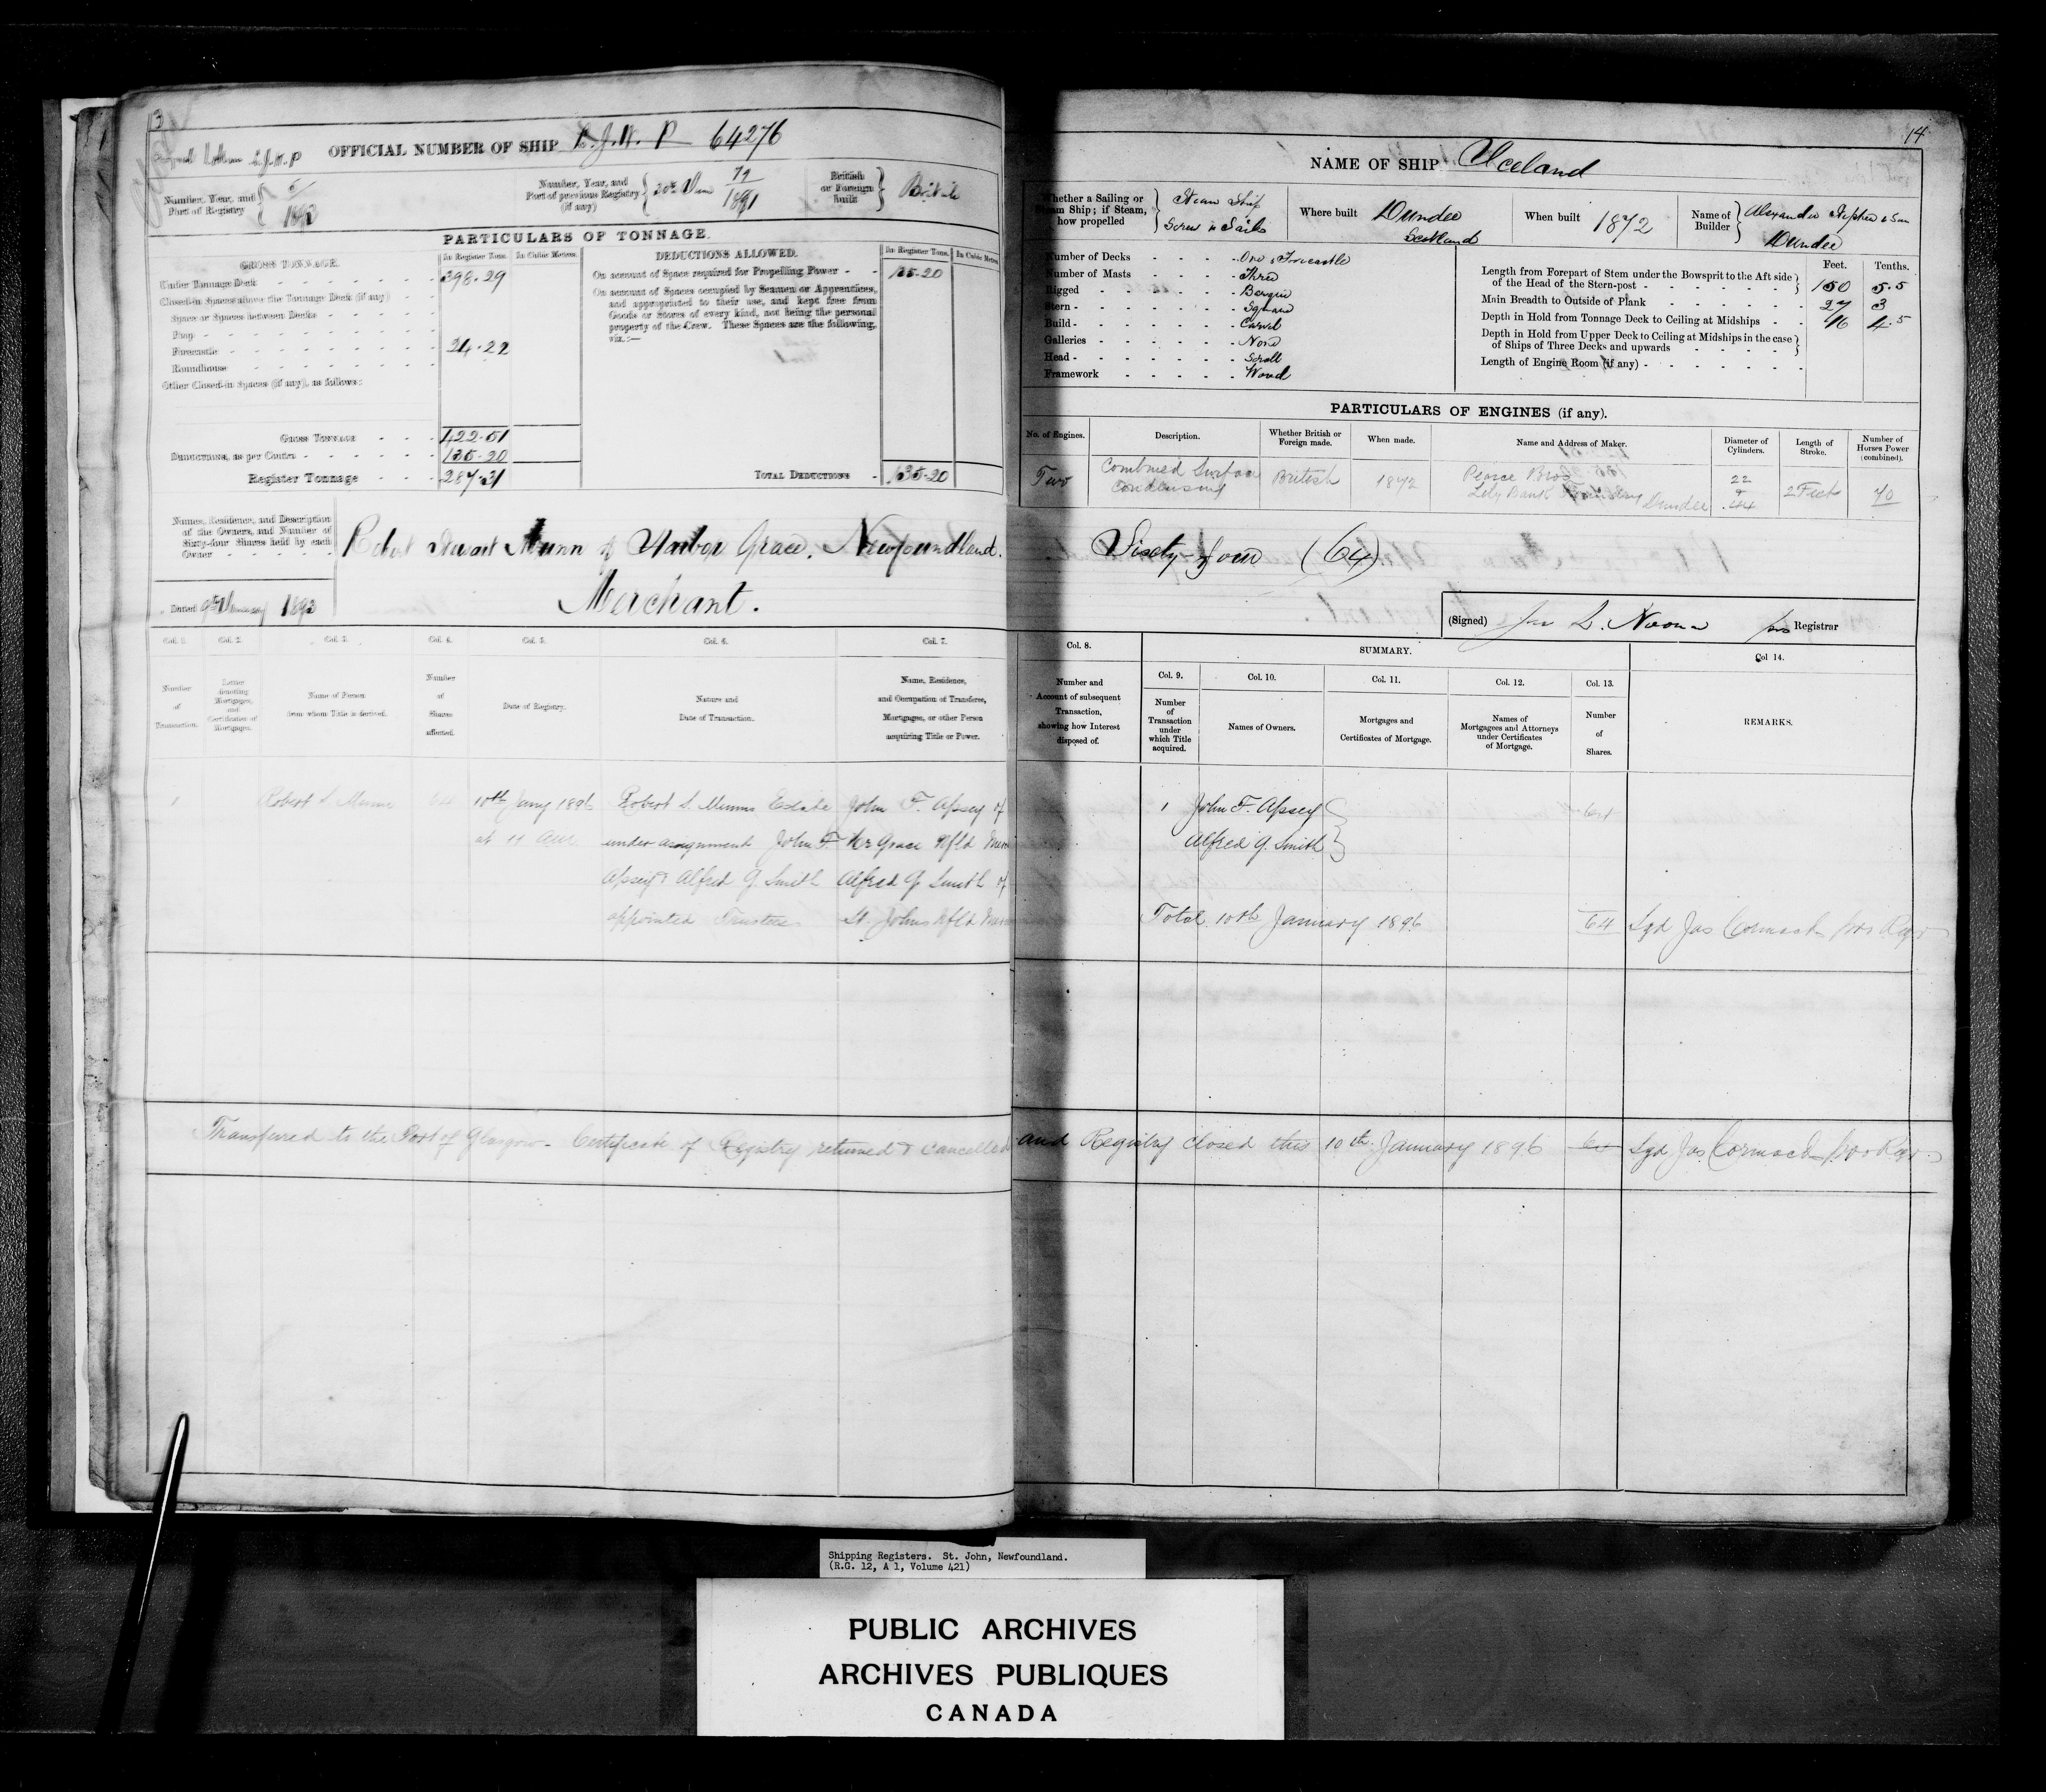 13
Signal Letters L.J.W.P OFFICIAL NUMBER OF SHIP L.J.W.P 64276
Number, Year, and Part of Registry 5/1893
Number, Year, and Part of previous Registry (if any) 1891
British or Foreign Built British
PARTICULARS OF TONNAGE.
GROSS TONNAGE. In Register Tons. In Cubic Metres.
Under Tonnage Deck 398.29
Closed-in Spaces above the Tonnage Deck (if any)
Space or Spaces between Decks
Poop
Forecastle 24.22
Roundhouse
Other Closed-in Spaces (if any), as follows:
Gross Tonnage 422.51
Deductions, as per Contra 135.20
Register Tonnage 287.31
DEDUCTIONS ALLOWED. In Register Tons. In Cubic Metres.
On account of Space required for Propelling Power 135.20
On account of Spaces occupied by Seamen or Apprentices,
and appropriated to their use, and kept free from
Goods or Stores of every kind, not being the personal
property of the Crew. These Spaces are the following,
viz.:—
Total Deductions 135.20
Names, Residence, and Description
of the Owners, and Number of
Sixty-four Shares held by each
Owner
Robert Stewart Munn of Harbor Grace, Newfoundland.
Merchant.
Dated 9th 1893
Col. 1. Col. 2. Col. 3. Col. 4. Col. 5. Col. 6. Col. 7.
Number of Transaction.
Letter denoting Mortgages, and Certificates of Mortgages.
Name of Person from whom Title is derived.
Number of Shares affected.
Date of Registry.
Nature and Date of Transaction.
Name, Residence, and Occupation of Transferee, Mortgagee, or other Person acquiring Title or Power.
1 Robert S. Munn 64 10th Jany 1896 Robert S. Munns Estate John F. Apsey of
at 11 am under assignment John F. Hr Grace Nfld
Apsey & Alfred G. Smith Alfred G. Smith of
appointed Trustees St. Johns Nfld
Transferred to the Port of Glasgow - Certificate of Registry returned & cancelled
14
NAME OF SHIP Iceland
Whether a Sailing or Steam Ship; if Steam, how propelled Steam Ship Screw & Sails
Where built Dundee Scotland
When built 1872
Name of Builder Alexander Stephen & Son Dundee
Number of Decks One & Forecastle
Number of Masts Three
Rigged Barque
Stern Square
Build Carvel
Galleries None
Head Scroll
Framework Wood
Feet. Tenths.
Length from Forepart of Stem under the Bowsprit to the Aft side
of the Head of the Stern-post 150 5.5
Main Breadth to Outside of Plank 27 3
Depth in Hold from Tonnage Deck to Ceiling at Midships 16 4.5
Depth in Hold from Upper Deck to Ceiling at Midships in the case
of Ships of Three Decks and upwards
Length of Engine Room (if any)
PARTICULARS OF ENGINES (if any).
No. of Engines. Description. Whether British or Foreign made. When made. Name and Address of Maker. Diameter of Cylinders. Length of Stroke. Number of Horses Power (combined).
Two Combined Surface Condensing British 1872 Pearce Bros Lily Bank Dundee 22 & 44 2 Feet 70
Sixty-four (64)
(Signed) L. Noonan pro Registrar
Col. 8. SUMMARY. Col 14.
Number and Account of subsequent Transaction, showing how Interest disposed of.
Col. 9. Col. 10. Col. 11. Col. 12. Col. 13.
Number of Transaction under which Title acquired.
Names of Owners.
Mortgages and Certificates of Mortgage.
Names of Mortgagees and Attorneys under Certificates of Mortgage.
Number of Shares.
REMARKS.
1 John F. Apsey 64
Alfred G. Smith
Total 10th January 1896 64 Sgd Jas Cormack pro Regr
and Registry closed this 10th January 1896 64 Sgd Jas Cormack pro Regr
Shipping Registers. St. John, Newfoundland.
(R.G. 12, A 1, Volume 421)
PUBLIC ARCHIVES
ARCHIVES PUBLIQUES
CANADA